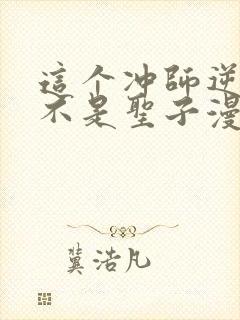 這个冲師逆
不是聖子漫
冀浩凡